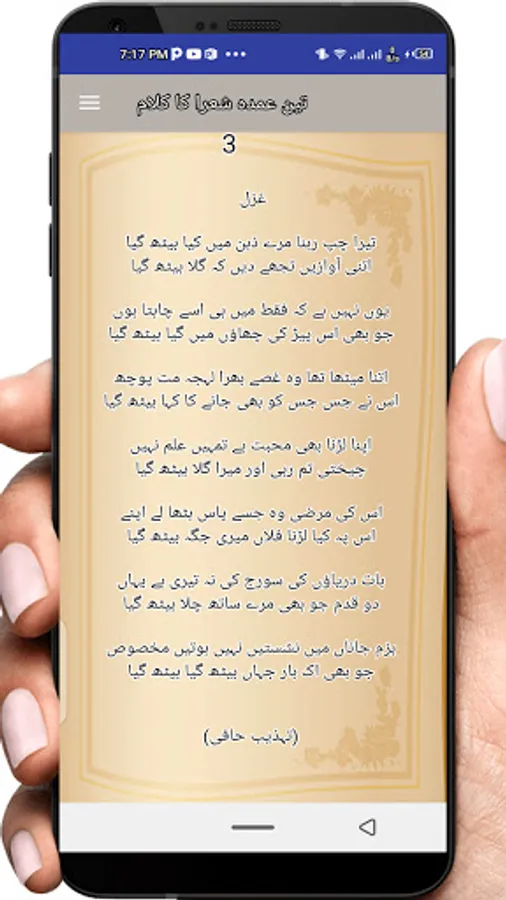 7:17 PM
تین عمدہ شعرا کا کلام
3
غزل
تیرا چپ رہنا مرے ذہن میں کیا بیٹھ گیا
اتنی آوازیں تجھے دیں کہ گلا بیٹھ گیا
یوں نہیں ہے کہ فقط میں ہی اسے چاہتا ہوں
جو بھی اس پیڑ کی چھاؤں میں گیا بیٹھ گیا
اتنا میٹھا تھا وہ غصے بھرا لہجہ مت پوچھ
اس نے جس جس کو بھی جانے کا کہا بیٹھ گیا
اپنا لڑنا بھی محبت ہے تمہیں علم نہیں
چیختی تم رہی اور میرا گلا بیٹھ گیا
اس کی مرضی وہ جسے پاس بٹھا لے اپنے
اس پہ کیا لڑنا فلاں میری جگہ بیٹھ گیا
بات دریاؤں کی سورج کی نہ تیری ہے یہاں
دو قدم جو بھی مرے ساتھ چلا بیٹھ گیا
بزم جاناں میں نشستیں نہیں ہوتیں مخصوص
جو بھی اک بار جہاں بیٹھ گیا بیٹھ گیا
(تہذیب حافی)